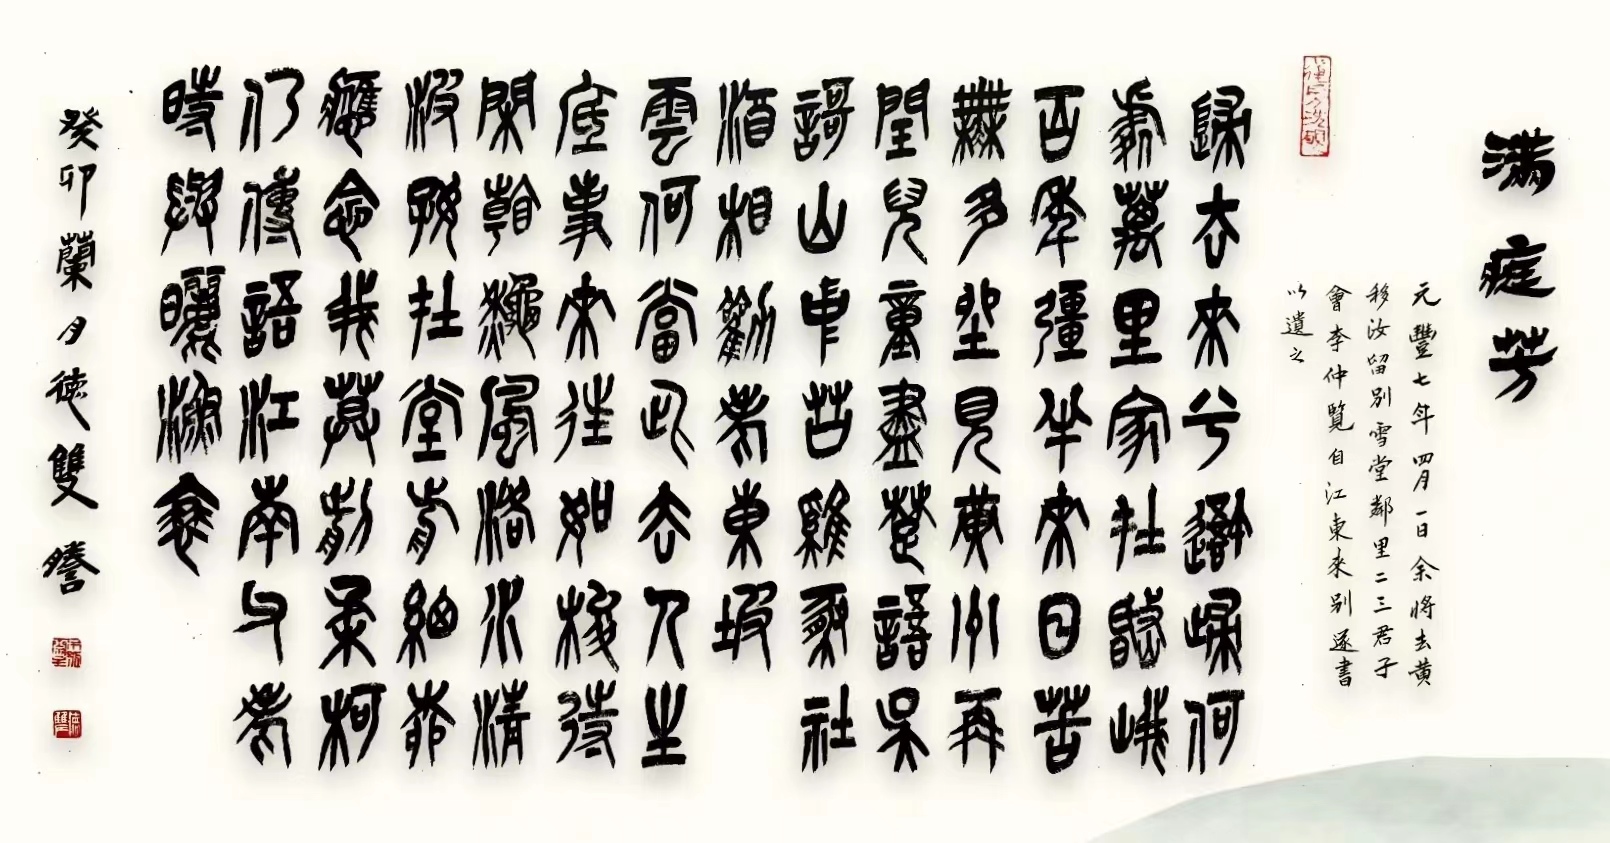 滿庭芳
元豐七年四月一日余將去黄
移汝留别雪堂鄰里二三君子
會李仲覽自江東來别遂書
以遺之
歸去來兮吾歸何
處萬里家在岷峨
百年彊半來日苦
無多坐見黄州再
閏兒童盡楚語吳
謌山中友雞豚社
酒相勸老東坡
雲何當此去人生
底事來往如梭待
閑看秋風洛水清
波好在堂前細柳
應念我莫翦柔柯
仍傳語江南父老
時與曬漁蓑
癸卯蘭月德雙謄